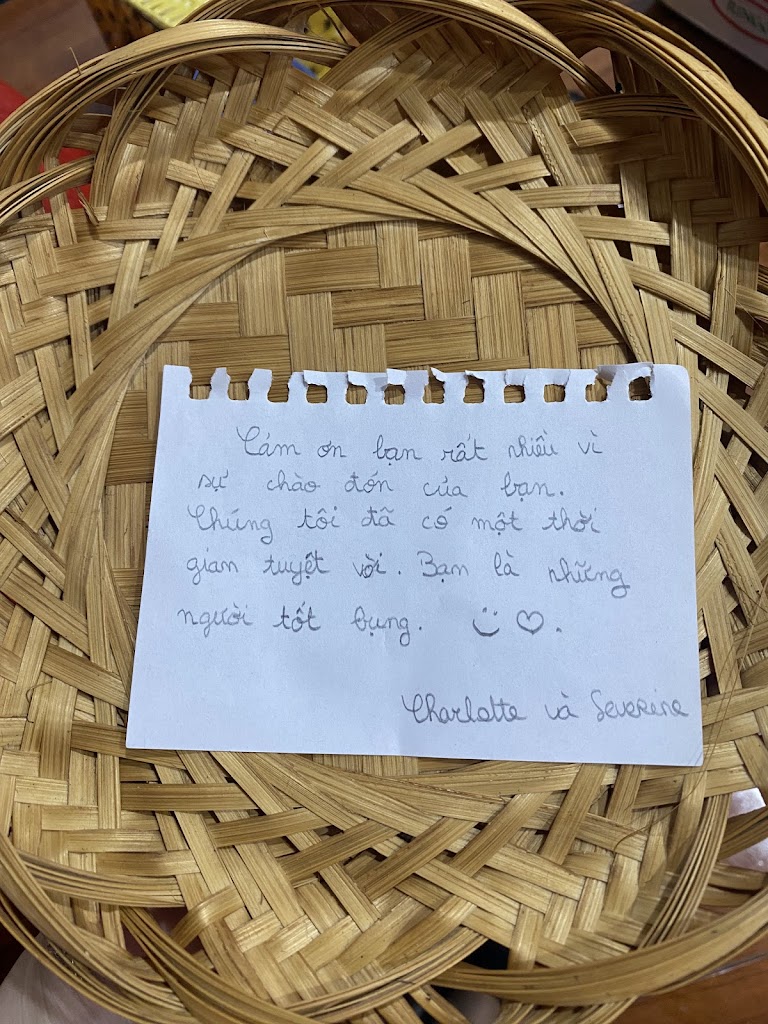 Cám ơn bạn rất nhiều vì
sự chào đón của bạn.
Chúng tôi đã có một thời
gian tuyệt vời. Bạn là những
người tốt bụng. ☺♡.
Charlotte và Severine